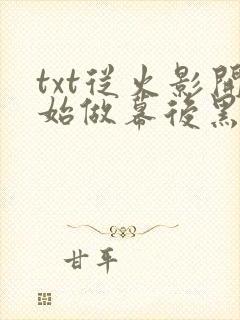 txt從火影開
始做幕後黑
甘平